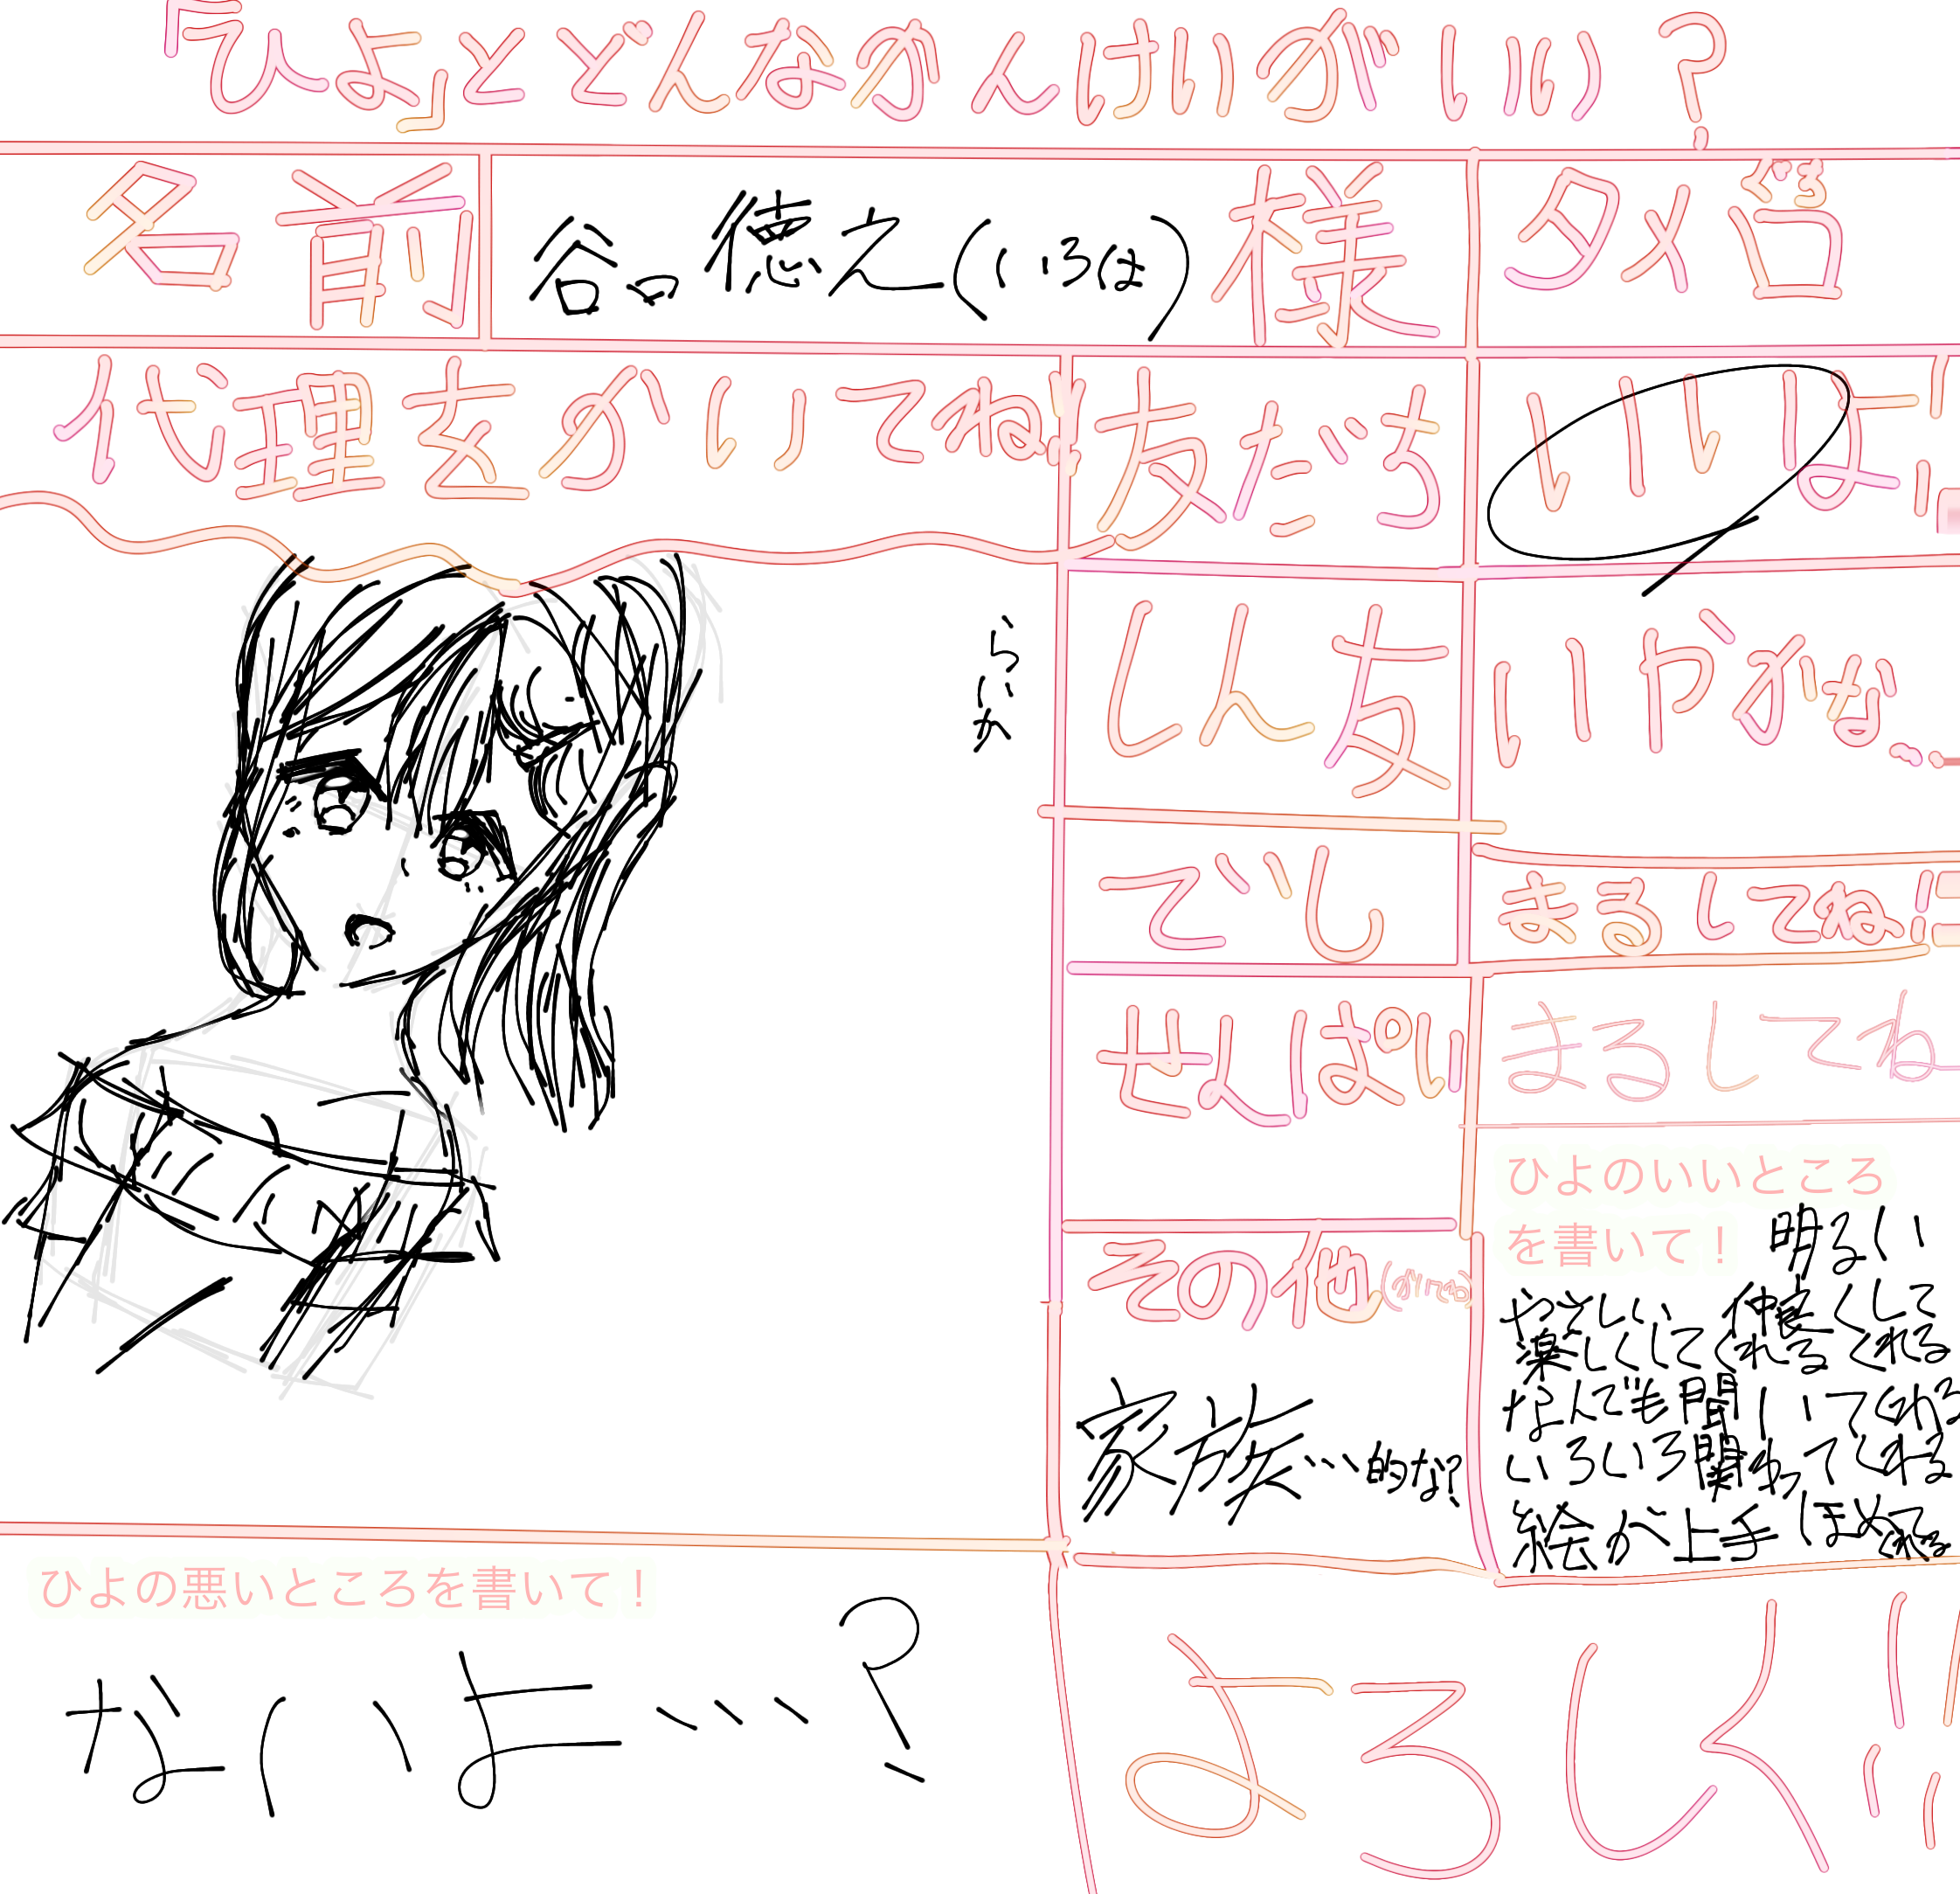 「ひよ」とどんなかんけいがいい?
名前
谷口徳之(いろは)様
タメ口
代理を かいてね!!
友だち
いいよ!!
しん友
いやかな…
でし
まるしてね!!
せんぱい
まるしてね
その他
家族…的な?
ひよのいいところ
を書いて!
明るい
やさしい 仲良くして
楽しくしてくれる くれる
なんでも聞いてくれる
いろいろ関わってくれる
絵が上手 ほめてくれる
ひよの悪いところを書いて!
ないよ…?
よろしく!!